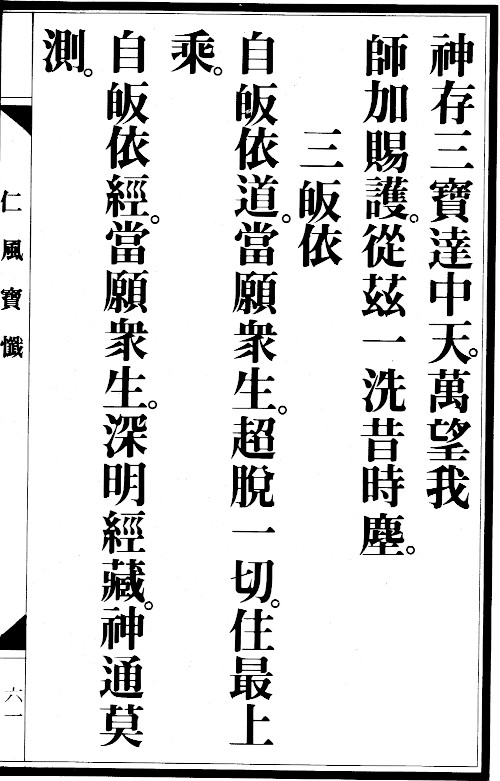 神存三寶達中天。萬望我
師加賜護。從茲一洗昔時塵。
三皈依
自皈依道。當願衆生。超脫一切。住最上
乘。
自皈依經。當願衆生。深明經藏。神通莫
測。
仁風寶懺
六一